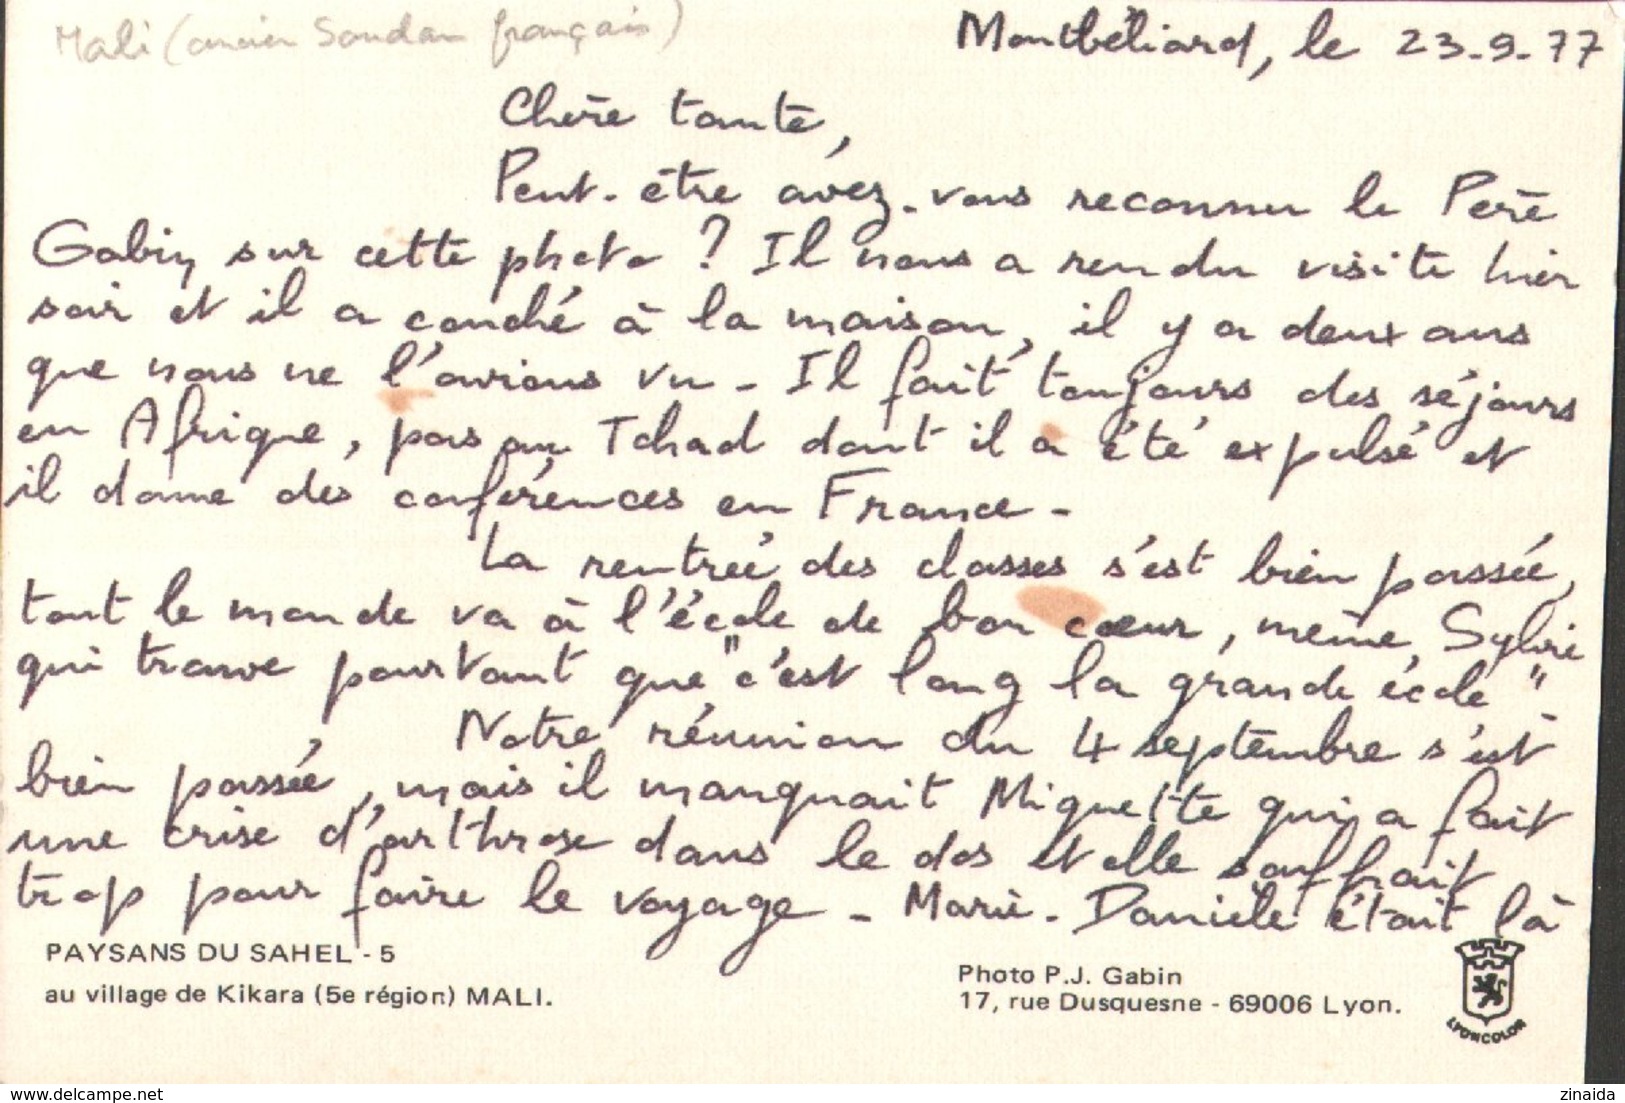 Mali (ancien Soudan français)
Montbéliard, le 23.9.77
Chère tante,
Peut-être avez-vous reconnu le Père
Gabin sur cette photo ? Il nous a rendu visite hier
soir et il a couché à la maison, il y a deux ans
que nous ne l'avions vu - Il fait toujours des séjours
en Afrique, pas au Tchad dont il a été expulsé et
il donne des conférences en France -
La rentrée des classes s'est bien passée,
tout le monde va à l'école de bon cœur, même Sylvie
qui trouve pourtant que "c'est long la grande école"
Notre réunion du 4 septembre s'est
bien passée, mais il manquait Miguette qui a fait
une crise d'arthrose dans le dos et elle souffrait
trop pour faire le voyage - Marie-Danièle était là
PAYSANS DU SAHEL - 5
au village de Kikara (5e région) MALI.
Photo P.J. Gabin
17, rue Dusquesne - 69006 Lyon.
LYONCOLOR
www.delcampe.net
zinaida